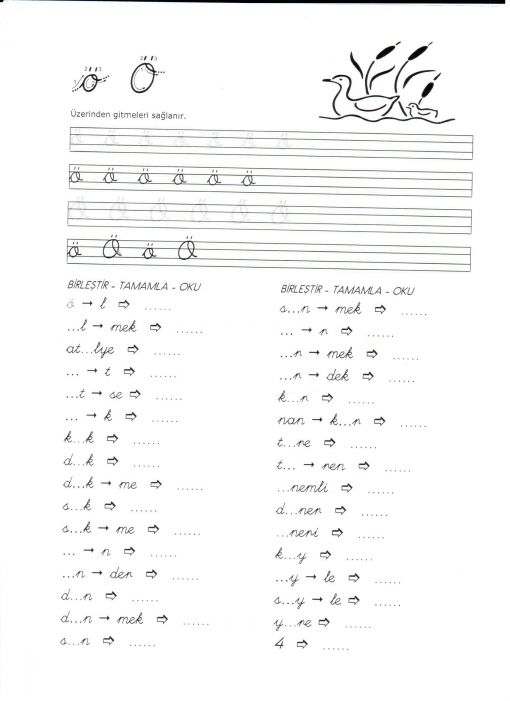 ö Ö
Üzerinden gitmeleri sağlanır.
ö ö ö ö ö ö ö
ö ö ö ö ö ö
Ö Ö Ö Ö Ö Ö
ö Ö ö Ö
BİRLEŞTİR - TAMAMLA - OKU
ö → l ⇨ ......
...l → mek ⇨ ......
at...lye ⇨ ......
... → t ⇨ ......
...t → se ⇨ ......
... → k ⇨ ......
k...k ⇨ ......
d...k ⇨ ......
d...k → me ⇨ ......
s...k ⇨ ......
s...k → me ⇨ ......
... → n ⇨ ......
...n → den ⇨ ......
d...n ⇨ ......
d...n → mek ⇨ ......
s...n ⇨ ......
BİRLEŞTİR - TAMAMLA - OKU
s...n → mek ⇨ ......
... → n ⇨ ......
...n → mek ⇨ ......
...n → dek ⇨ ......
k...n ⇨ ......
nan → k...n ⇨ ......
t...re ⇨ ......
t... → ren ⇨ ......
...nemli ⇨ ......
d...ner ⇨ ......
...neri ⇨ ......
k...y ⇨ ......
...y → le ⇨ ......
s...y → le ⇨ ......
y...re ⇨ ......
4 ⇨ ......